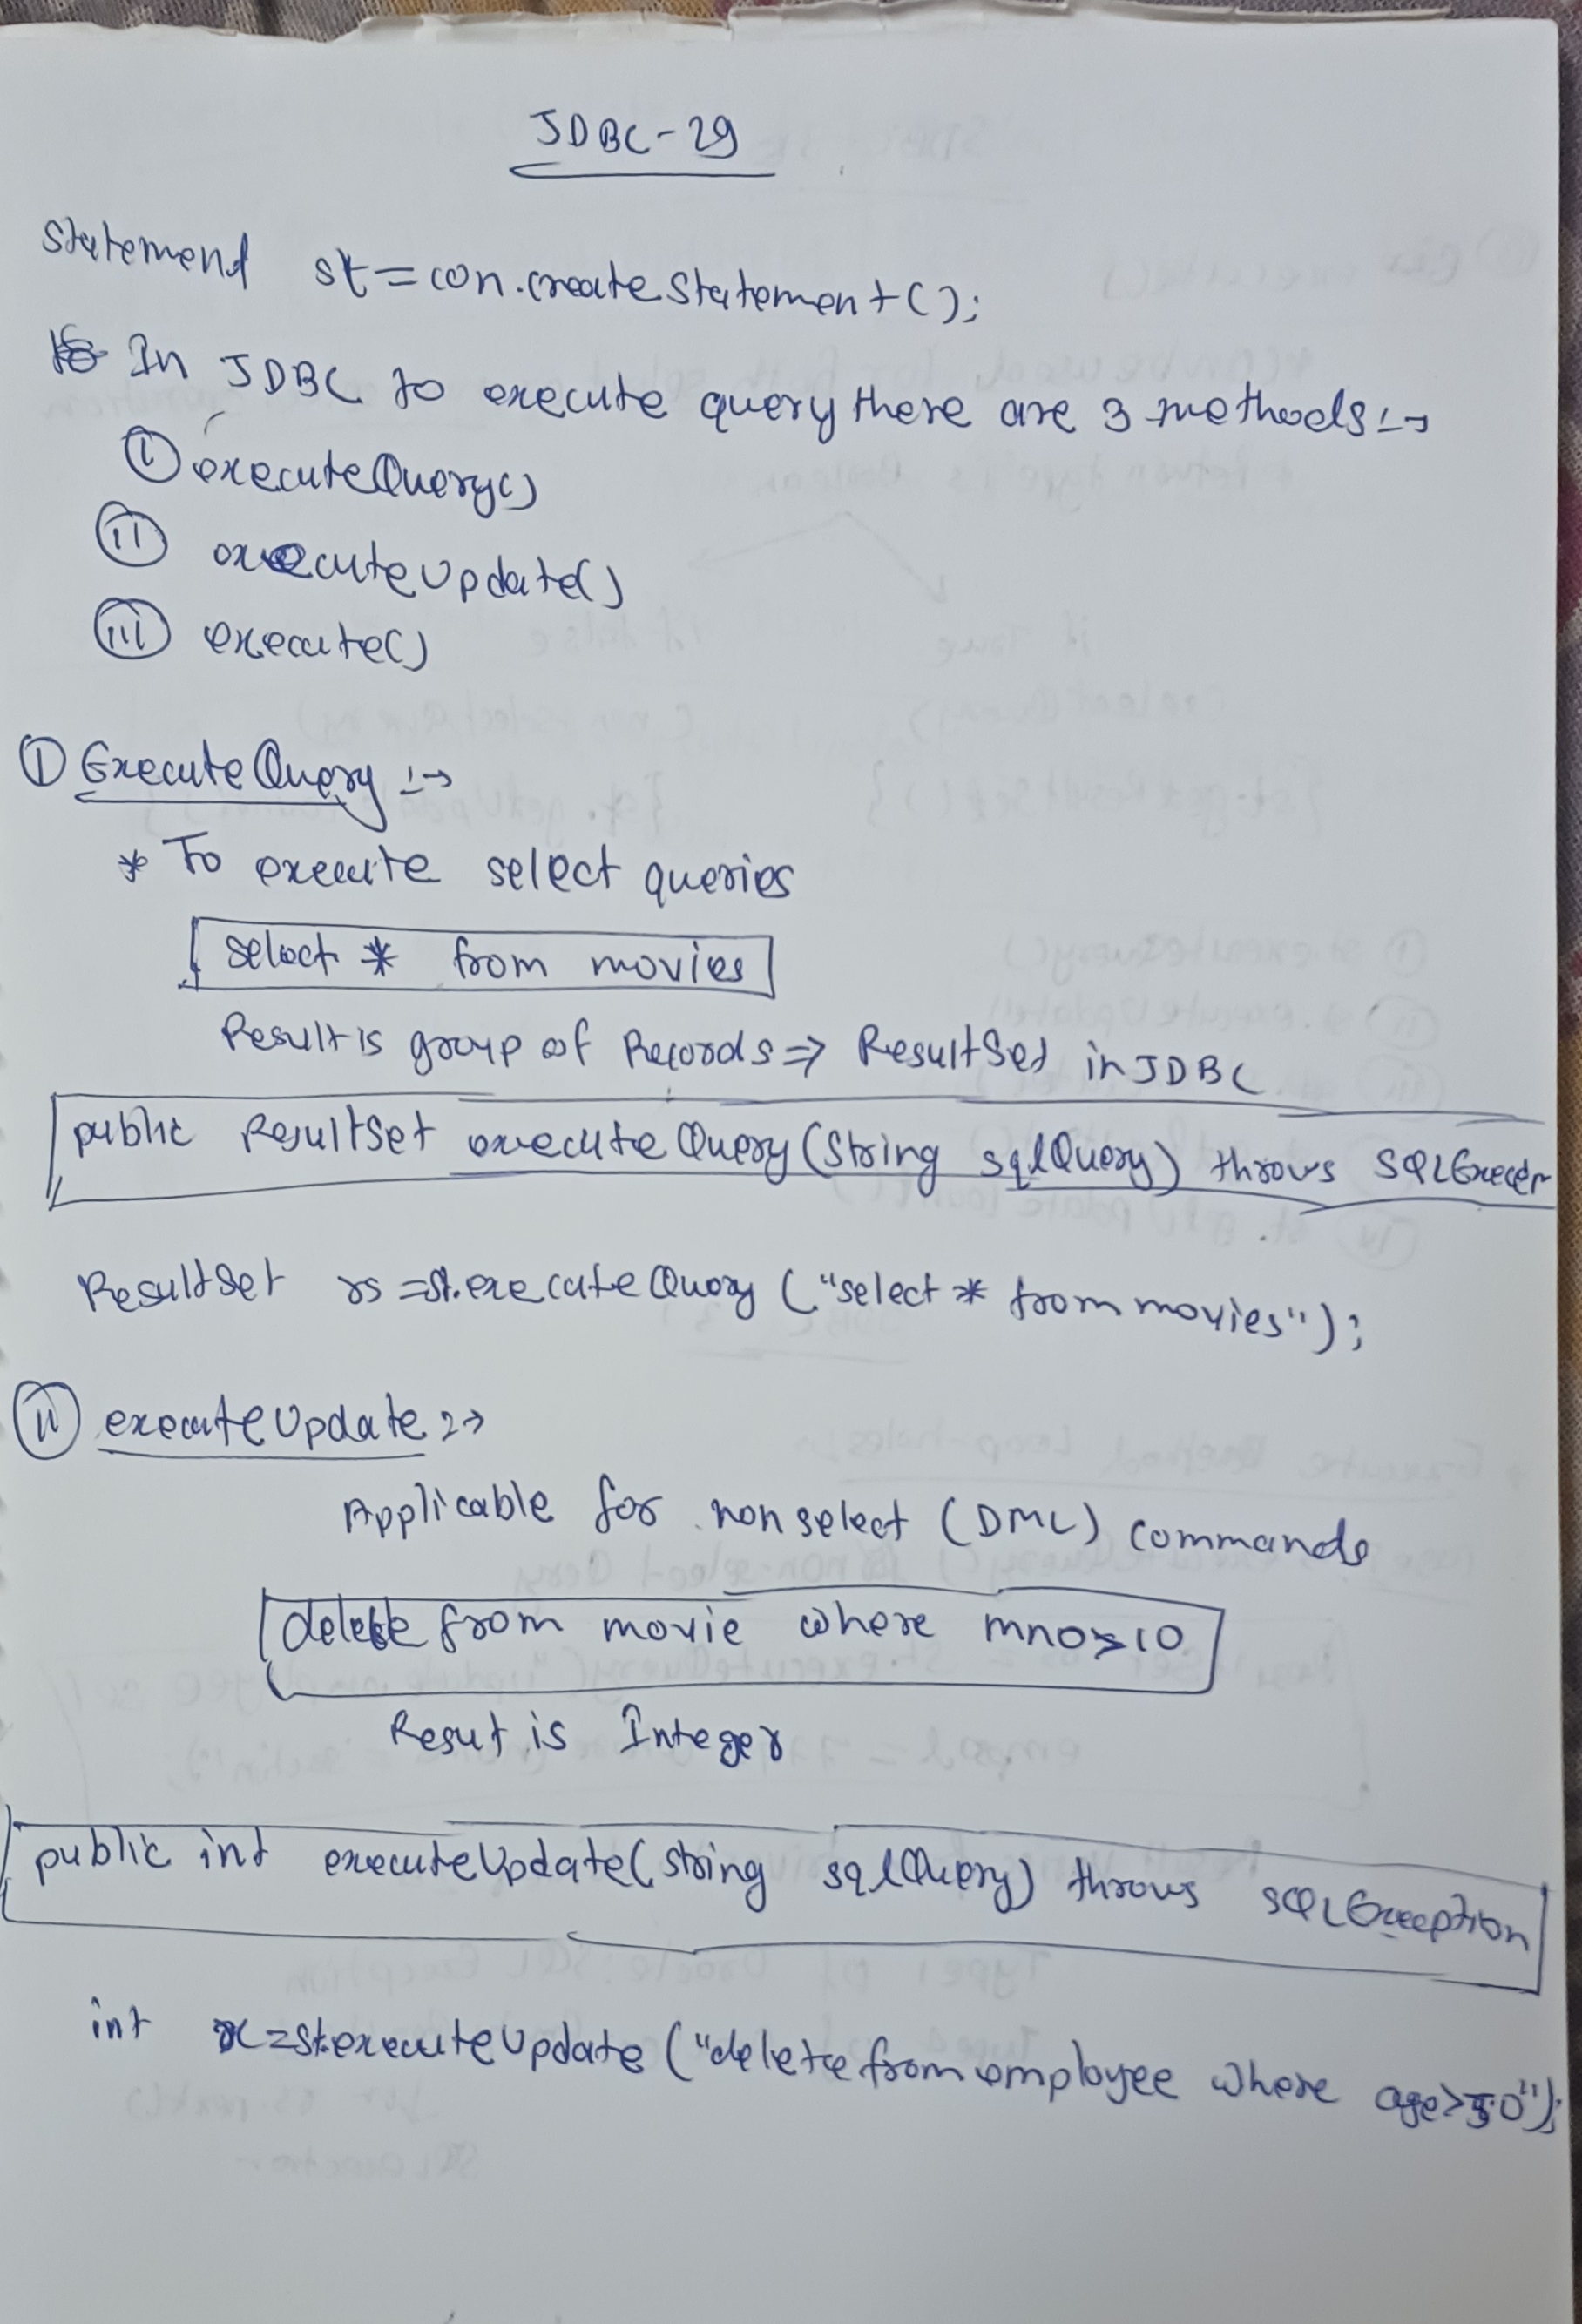 JDBC-29
Statement st=con.createStatement();
In JDBC to execute query there are 3 methods:→
(i) executeQuery()
(ii) executeUpdate()
(iii) execute()
(i) ExecuteQuery :→
* To execute select queries
select * from movies
Result is group of Records => ResultSet in JDBC
public ResultSet executeQuery(String sqlQuery) throws
ResultSet rs =st.executeQuery ("select * from movies");
(ii) executeUpdate :→
Applicable for non select (DML) commands
delete from movie where mno>10
Resut is Integer
public int executeUpdate(String sqlQuery) throws SQLException
int x=st.executeUpdate ("delete from employee where age>50");